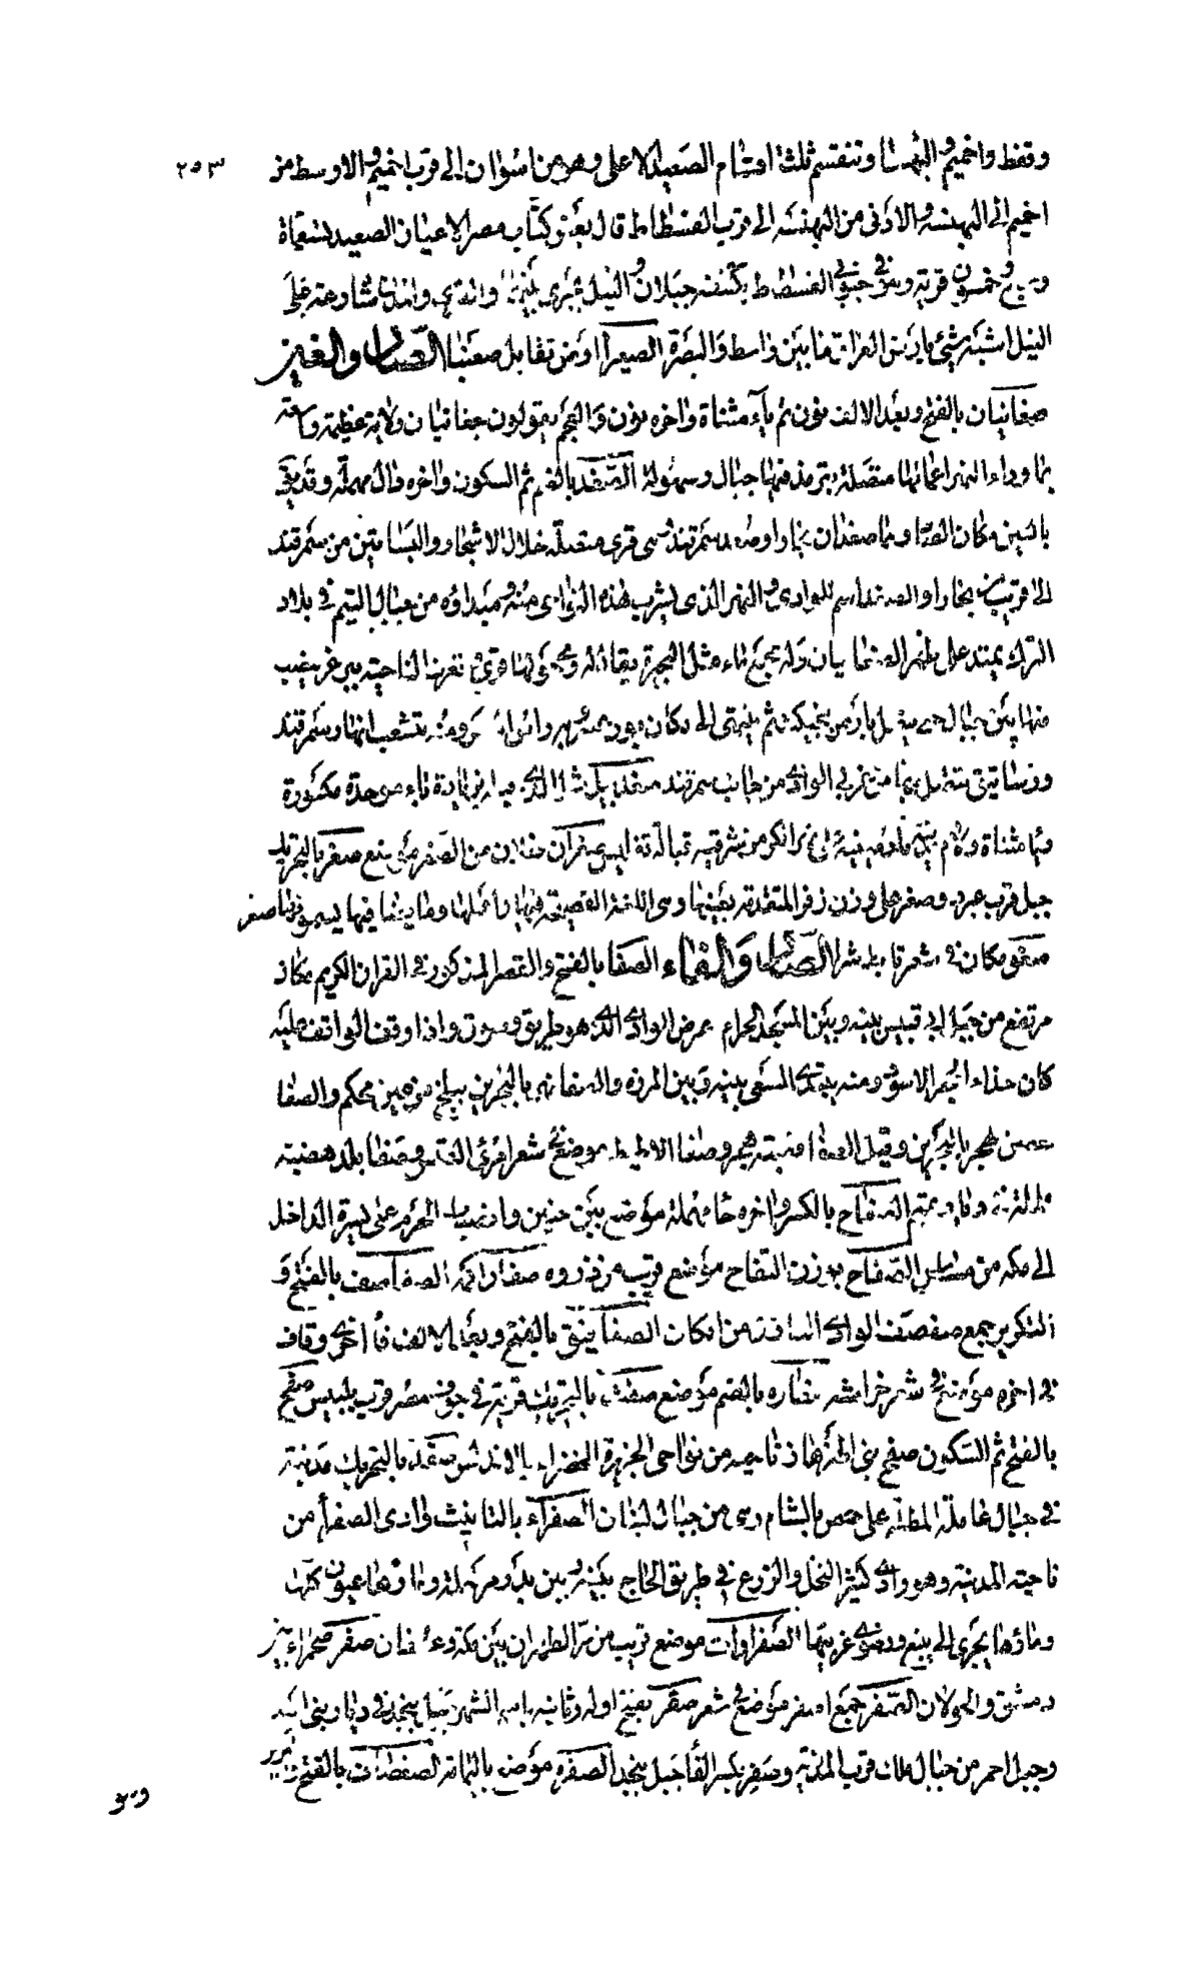 ٢٥٣
وقفط واخميم والبهنسا وتنقسم ثلثة اقسام الصعيد الاعلى وهو من اسوان الى قرب اخميم والاوسط من
اخميم الى البهنسه والادنى من البهنسه الى قرب الفسطاط قال بعض كتاب مصر الاعيان الصعيد تسعماة
وسبع وخمسون قرية وهو في جنوبي الفسطاط يكتنفه جبلان والنيل يجري بينهما والقرى والمدن شارعة على
النيل اشبه شيئ بارض العراق ما بين واسط والبصرة الصعيرا ارض تقابل صعنبا الصاد والغين
صغانيان بالفتح وبعد الالف نون ثم ياء مثناة واخره نون والعجم يقولون جغانيان ولاية عظيمة واسعة
بما وراء النهر اعمالها متصلة بترمذ فيها جبال وسهولة الصغد بالضم ثم السكون واخره دال مهملة وقد يقع
بالسين مكان الصاد وهما صغدان بخارا وصغد سمرقند هي قرى متصلة خلال الاشجار والبساتين من سمرقند
الى قريب من بخارا والصغد اسم للوادي والنهر الذي يشرب هذه النواحي منه ومبداؤه من جبال البتم في بلاد
الترك يمتد على ظهر الصغانيان وله مجمع ماء مثل البحيرة يقال له وحوالي لها قرى تعرف الناحية ببرغر فينصب
منها بين جبال حتى يتصل بارض بنجيكث ثم ينتهى الى مكان يعرف بورغسر ومنه يتشعب انهار سمرقند
ورساتيق تتصل بها من غربي الوادي من جانب سمرقند صغدبيل بزيادة باء موحدة مكسورة
وياء مثناة ولام مدينة بارمينية على نهر الكر من شرقيه قبالة تفليس صغران فعلان من الصغر موضع صغر بالتحريك
جبل قرب عبود وصغر على وزن زفر المتقدمة بعينها وهي اللغة الفصيحة فيها واهلها وما يصاقبها يسمونها صغر
صغوى مكان في شعر تابط شرا الصاد والفاء الصفا بالفتح والقصر المذكور في القران الكريم مكان
مرتفع من جبل ابي قبيس بينه وبين المسجد الحرام عرض الوادي الذي هو طريق وسوق واذا وقف الواقف عليه
كان حذاء الحجر الاسود ومنه يبتدئ السعي بينه وبين المروة والصفا نهر بالبحرين يتخلج من عين محكم والصفا
حصن لهجر بالبحرين وقيل الصفا قصبة هجر وصفا الاطيط موضع في شعر امرئ القيس وصفا بلد هضبة
ململمة في بلاد تميم الصفاح بالكسر واخره حا مهملة موضع بين حنين وانصاب الحرم على يسرة الداخل
الى مكه من مشاش الصفاح بوزن التفاح موضع قريب من ذروه صفار اكمة الصفاصف بالفتح و
التكرير جمع صفصف الوادي النازل من افكان الصفافيق بالفتح وبعد الالف فا اخرى وقاف
في اخره موضع في شعر خراشه صفاوه بالضم موضع صفت بالتحريك قرية في جوف مصر قرب بلبيس صفح
بالفتح ثم السكون صفح بني الهزهاز ناحيه من نواحى الجزيرة الخضراء بالاندلس صفد بالتحريك مدينة
في جبال عاملة المطلة على حمص بالشام وهي من جبال لبنان الصفراء بالتانيث وادي الصفراء من
ناحية المدينة وهو وادي كثير النخل والزرع في طريق الحاج بينه وبين بدر مرحلة وماؤها عيون كلها
وماؤها يجري الى ينبع ورضوى غربيها الصفراوات موضع قريب من مر الظهران بين مكة وعسفان صفر صحراء بين
دمشق والجولان الصفر جمع اصفر موضع في شعر صفر بفتح اوله وثانيه باسم الشهر جبل بنجد في ديار بني اسد
وجبل احمر من جبال ملل قرب المدينة وصفر بكسر الفا جبل بنجد الصفرة موضع باليمامة الصفصات بالفتح